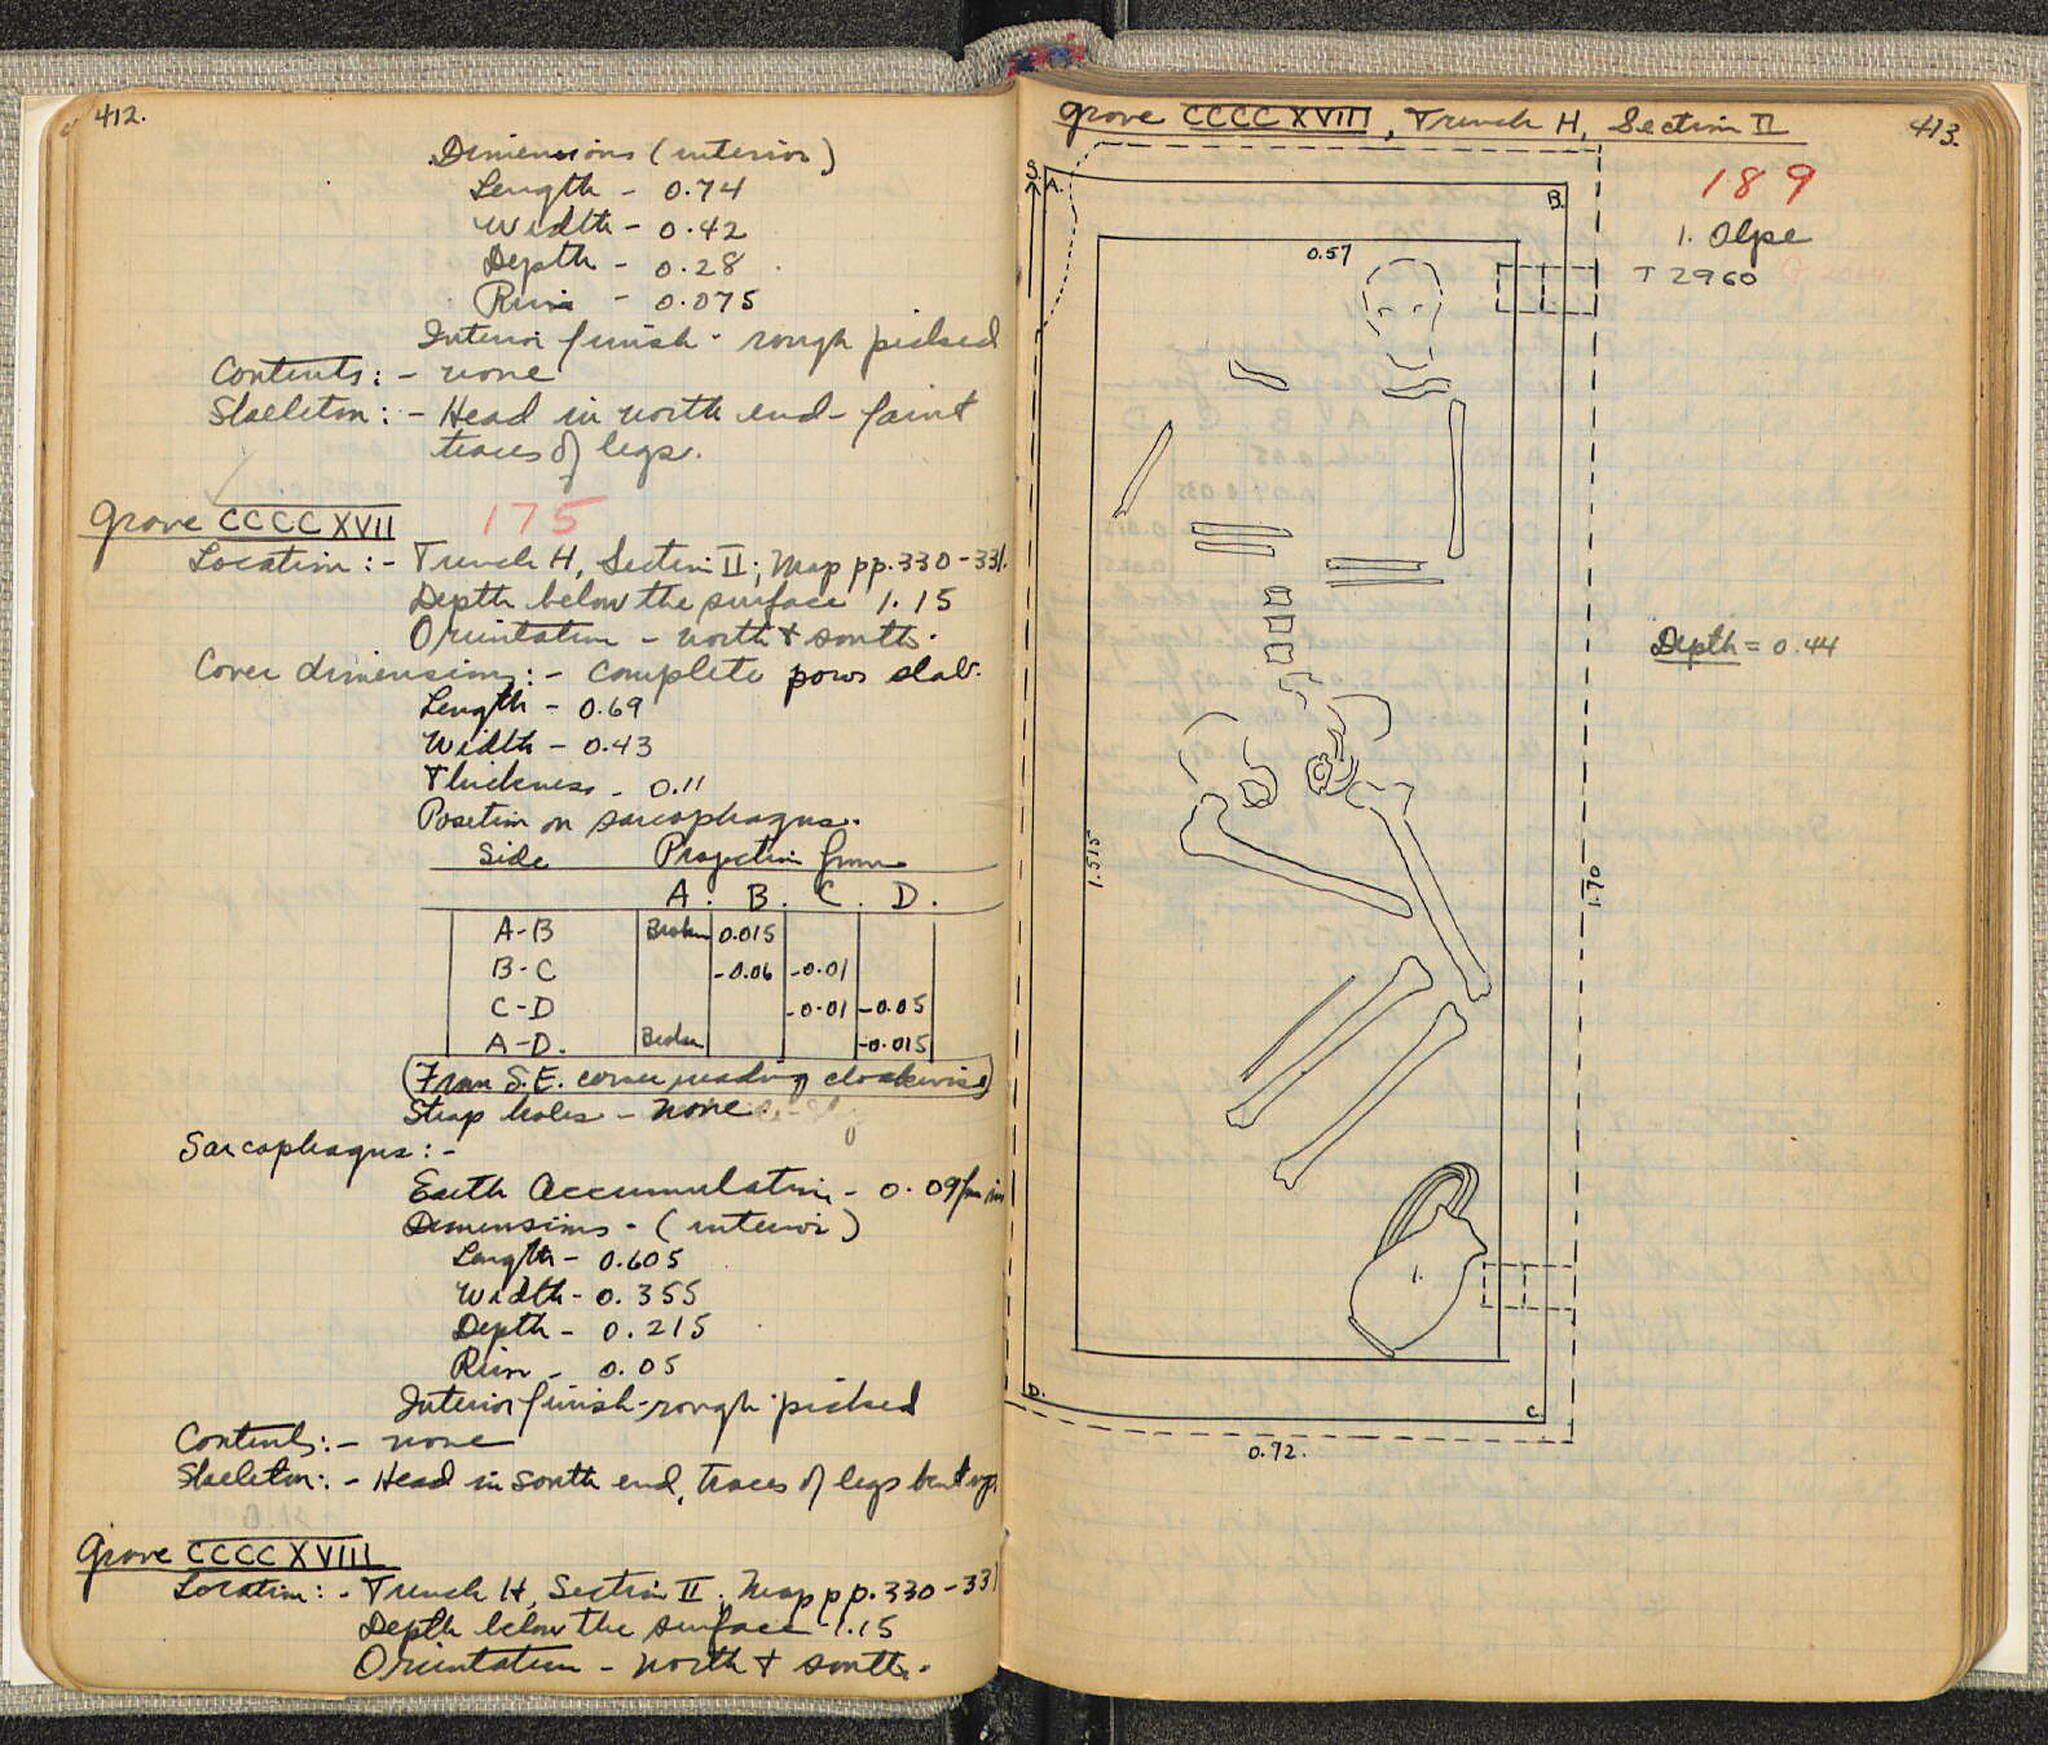 412.
Dimensions (interior)
Length - 0.74
Width - 0.42
Depth - 0.28
Rim - 0.075
Interior finish - rough picked
Contents: - none
Skeleton: - Head in north end - faint
traces of legs.
Grave CCCCXVII 175
Location: - Trench H, Section II; Map pp. 330-331.
Depth below the surface 1.15
Orientation - north & south.
Cover dimensions: - complete poros slab.
Length - 0.69
Width - 0.43
Thickness - 0.11
Position on sarcophagus.
Side Projection from
A. B. C. D.
A-B Broken 0.015
B-C -0.06 -0.01
C-D -0.01 -0.05
A-D. Broken -0.015
(From S.E. corner reading clockwise)
Strap holes - none.
Sarcophagus: -
Earth Accumulation - 0.09 fm rim
Dimensions - (interior)
Length - 0.605
Width - 0.355
Depth - 0.215
Rim - 0.05
Interior finish - rough picked
Contents: - none
Skeleton: - Head in south end, traces of legs bent up.
Grave CCCCXVIII
Location: - Trench H, Section II; Map pp. 330-331
Depth below the surface 1.15
Orientation - north & south.
Grave CCCCXVIII, Trench H, Section II
413.
189
1. Olpe
T 2960
S.
A.
B.
0.57
Depth = 0.44
1.515
1.70
1.
D.
C.
0.72.